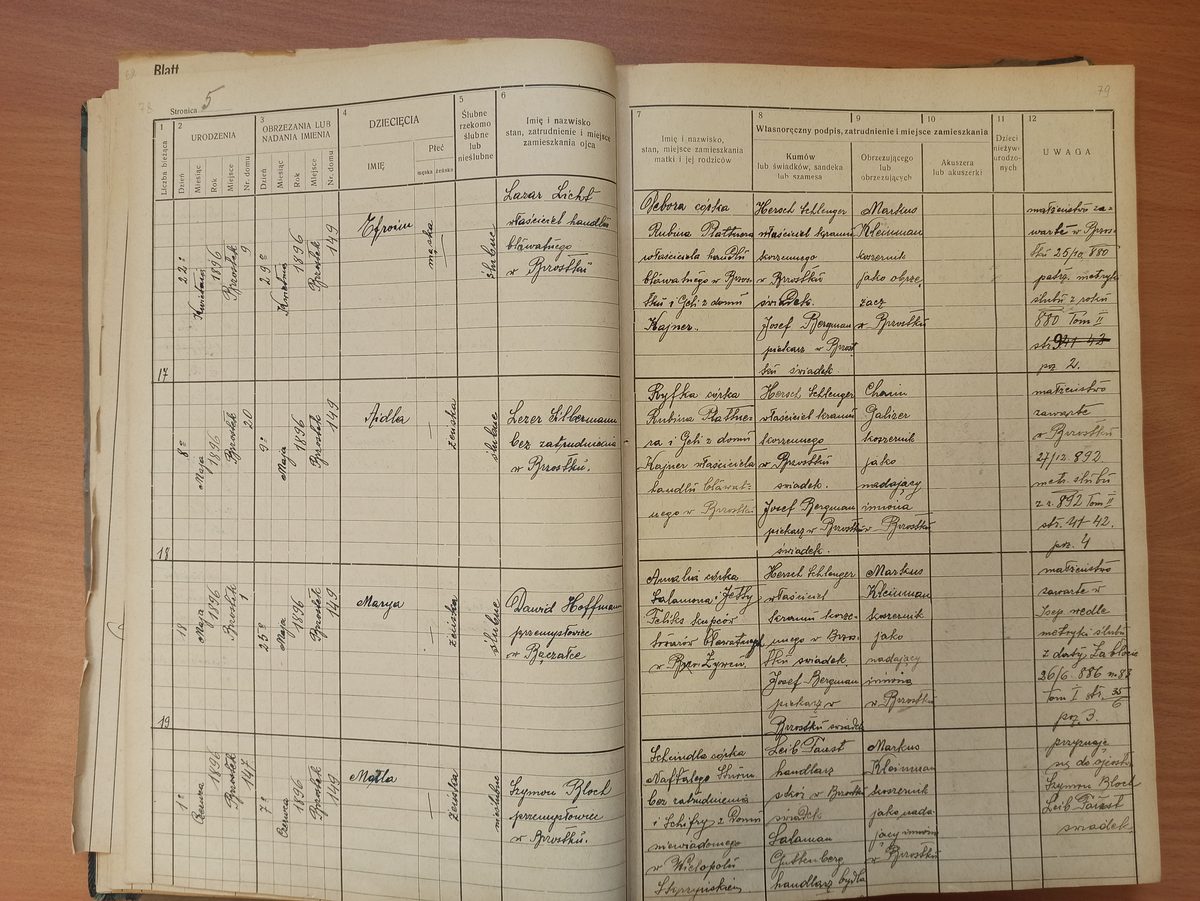 Blatt
Stronica 5
79
1
Liczba bieżąca
2
URODZENIA
Dzień
Miesiąc
Rok
Miejsce
Nr. domu
3
OBRZEZANIA LUB
NADANIA IMIENIA
Dzień
Miesiąc
Rok
Miejsce
Nr. domu
4
DZIECIĘCIA
IMIĘ
Płeć
męska
żeńska
5
Ślubne
rzekomo
ślubne
lub
nieślubne
6
Imię i nazwisko
stan, zatrudnienie i miejsce
zamieszkania ojca
7
Imię i nazwisko,
stan, miejsce zamieszkania
matki i jej rodziców
Własnoręczny podpis, zatrudnienie i miejsce zamieszkania
8
Kumów
lub świadków, sandeka
lub szamesa
9
Obrzezującego
lub
obrzezujących
10
Akuszera
lub akuszerki
11
Dzieci
nieżywo
urodzo-
nych
12
UWAGA
17
22
Kwietnia
1896
Brzostek
9
29
Kwietnia
1896
Brzostek
149
Efroim
męska
ślubne
Lazar Licht
właściciel handlu
bławatnego
w Brzostku
Debora córka
Rubina Plattnera
właściciela handlu
bławatnego w Brzos-
tku i Geli z domu
Kajner.
Hersch Schlenger
właściciel kramu
korzennego
w Brzostku
świadek.
Josef Bergman
piekarz w Brzost
ku świadek
Markus
Kleinman
koszernik
jako obrze,
zacz
w Brzostku
małżeństwo za=
warte w Brzos-
tku 25/10 880
patrz. metryka
ślubu z roku
880 Tom II
str. 41 42
poz 2.
18
8
Maja
1896
Brzostek
20
9
Maja
1896
Brzostek
149
Aidla
żeńska
ślubne
Lezer Silbermann
bez zatrudnienia
w Brzostku.
Ryfka córka
Rubina Plattne-
ra i Geli z domu
Kajner właściciela
handlu bławat-
nego w Brzostku
Hersch Schlenger
właściciel kramu
korzennego
w Brzostku
świadek.
Josef Bergman
piekarz w Brzostku
świadek.
Chaim
Galizer
koszernik
jako
nadający
imiona
w Brzostku
małżeństwo
zawarte
w Brzostku
27/12 892
metr. ślubu
z r. 892 Tom II
str. 41 42.
poz. 4
19
18
Maja
1896
Brzostek
1
25
Maja
1896
Brzostek
149
Marya
żeńska
ślubne
Dawid Hoffman
przemysłowiec
w Bączałce
Amalia córka
Salamona i Jetty
Feliks kupców
towarów bławatnych
w
Hersch Schlenger
właściciel
kramu korze-
nnego w Brzos-
tku świadek.
Josef Bergman
piekarz w
Brzostku świadek
Markus
Kleinman
koszernik
jako
nadający
imiona
w Brzostku
małżeństwo
zawarte w
wedle
metryki ślubu
z daty
26/6 886
Tom I str. 35/6
poz 3.
1
Czerwca
1896
Brzostek
147
7
Czerwca
1896
Brzostek
149
Matla
żeńska
nieślubne
Szymon Bloch
przemysłowiec
w Brzostku.
Scheindla córka
Naftalego
bez zatrudnienia
i Schifry z domu
niewiadomego
w Wielopolu
Skrzyńskiem
Leib Faust
handlarz
skór w Brzostku
świadek
Salaman
Guttenberg
handlarz bydła
Markus
Kleinman
koszernik
jako nada-
jący imiona
w Brzostku
przyznaje
się do ojcostwa
Szymon Bloch
Leib Faust
świadek